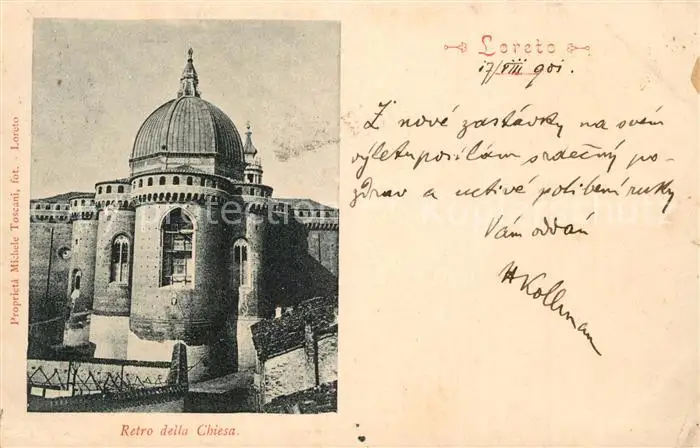 Loreto
17/VIII 901.
Z nové zastávky na svém
výletu posílám srdečný po-
zdrav a uctivé políbení ruky
Vám oddán
HKollman
Proprietà Michele Toscani, fot. - Loreto
Retro della Chiesa.